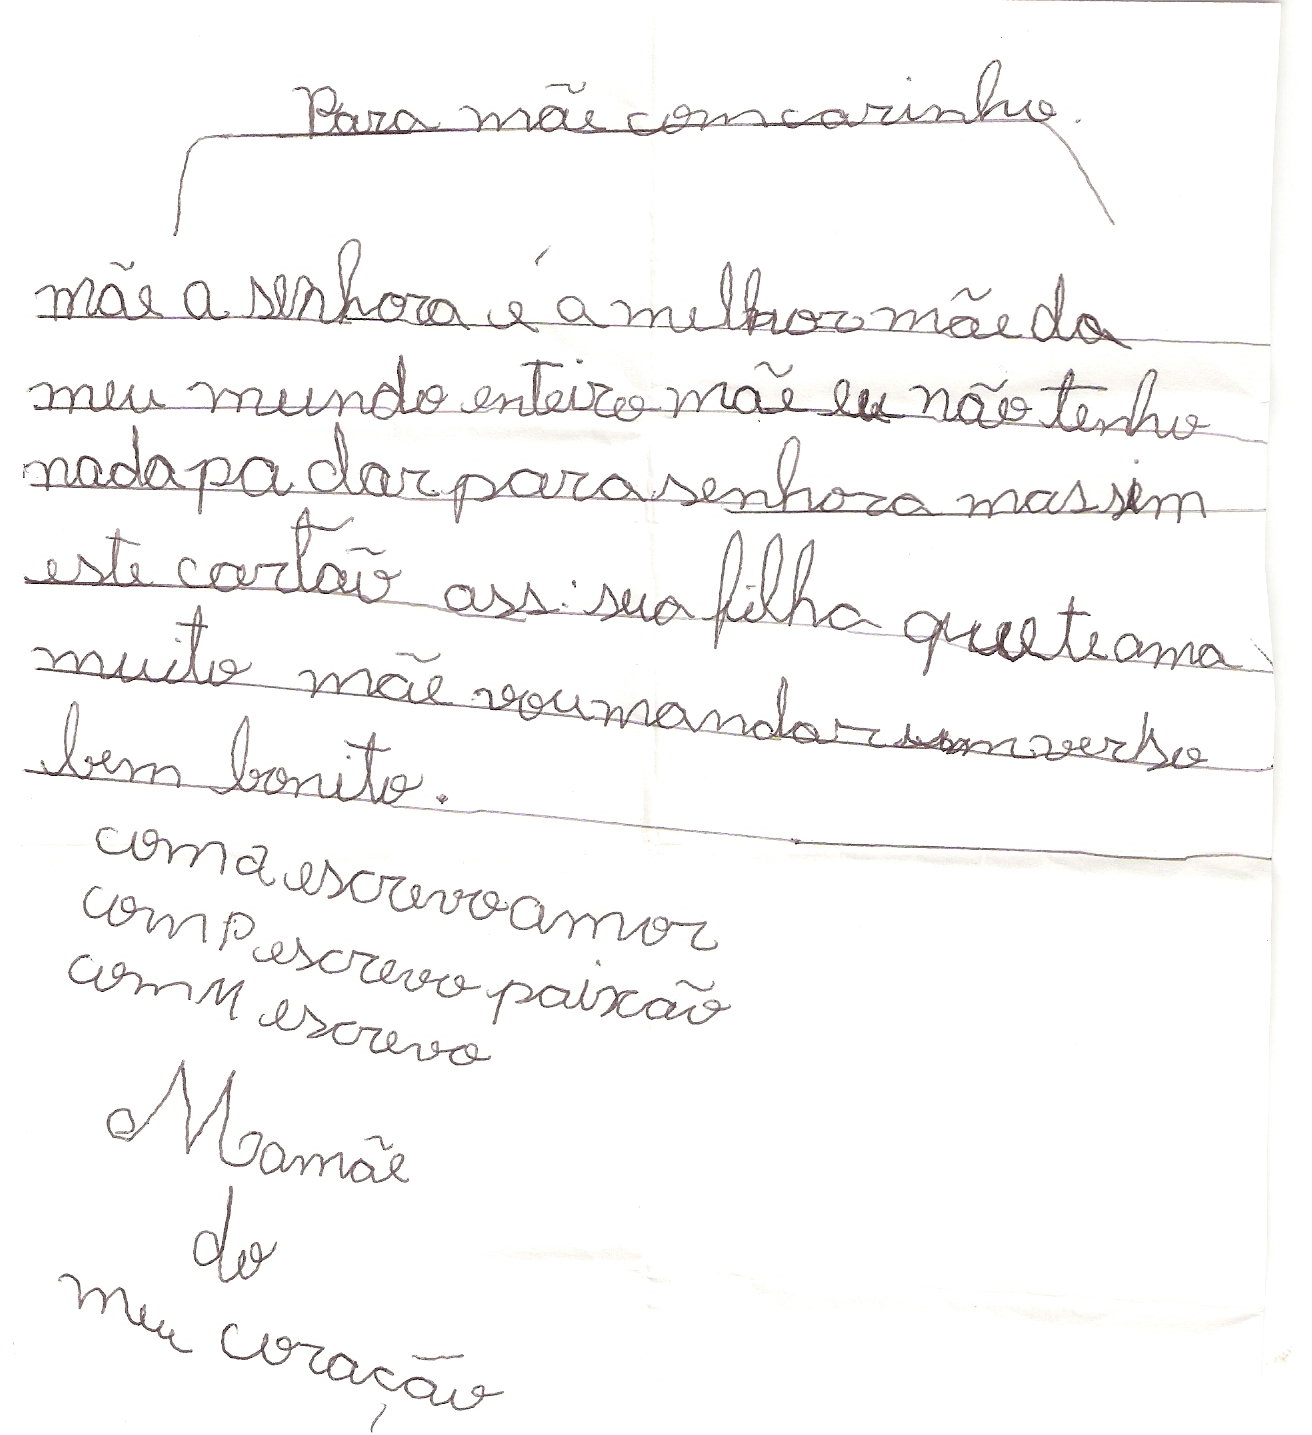 Para mãe com carinho.
mãe a senhora é a melhor mãe da
meu mundo enteiro mãe eu não tenho
nada pa dar para senhora mas sim
este cartão ass: sua filha que te ama
muito mãe vou mandar um verso
bem bonito.
com a escrevo amor
com P escrevo paixão
com M escrevo
Mamãe
do
meu coração